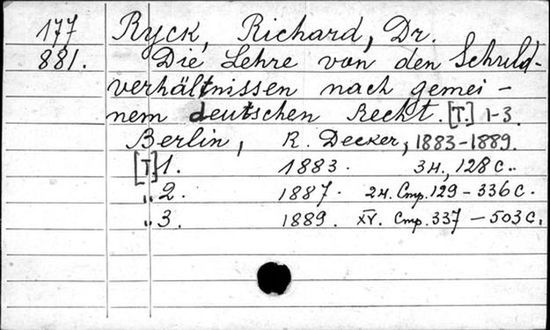 177 Ryck, Richard, Dr.
881. Die Lehre von den Schuld-
verhältnissen nach gemei-
nem deutschen Recht. [T.] 1-3.
Berlin, R. Decker, 1883-1889.
[T] 1. 1883. 3н., 128 с.
„ 2. 1887. 2н. Стр. 129-336 с.
„ 3. 1889. XV. Стр. 337-503 с.